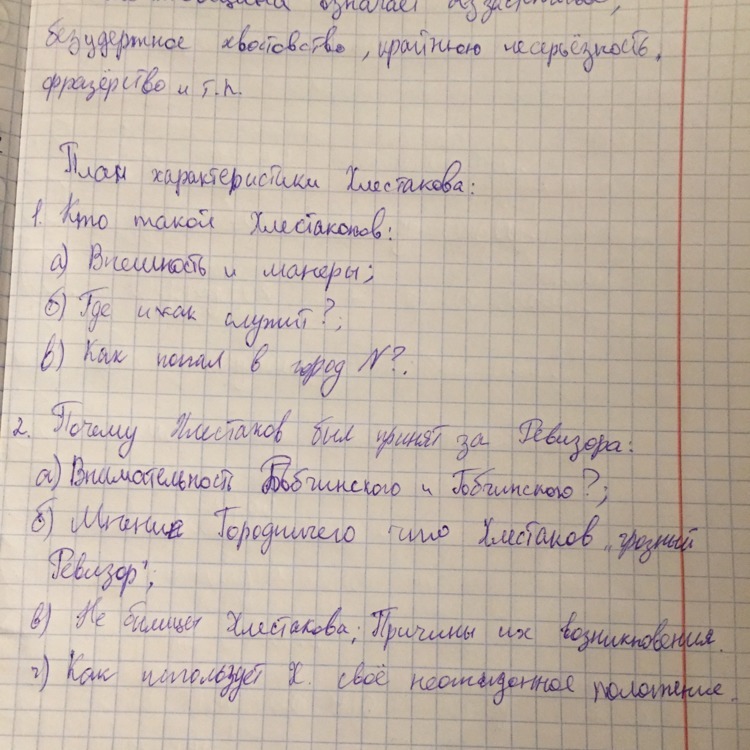 означает
безудержное хвостовство, крайнюю несерьёзность,
фразёрство и т.п.
План характеристики Хлестакова:
1. Кто такой Хлестаков:
а) Внешность и манеры;
б) Где и как служит?;
в) Как попал в город N?.
2. Почему Хлестаков был принят за Ревизора:
а) Внимательность Бобчинского и Добчинского?;
б) Мнение Городничего что Хлестаков „грозный
Ревизор";
в) Не билицы Хлестакова; Причины их возникновения.
г) Как использует Х. своё неожиданное положение.